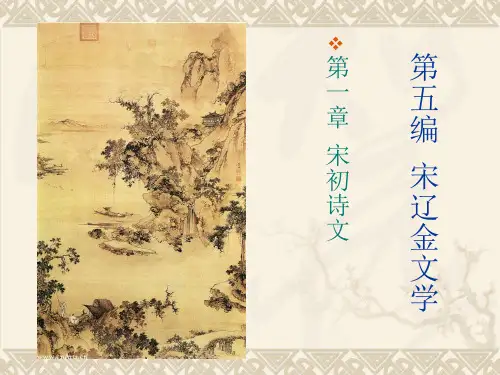 第五编 宋辽金文学
第一章 宋初诗文